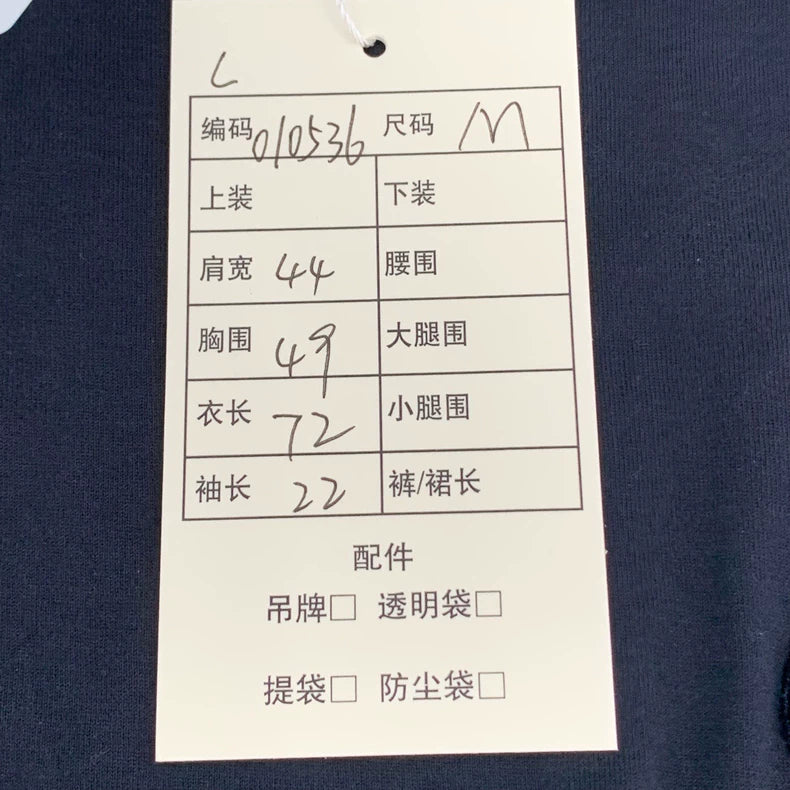 L
编码 010536 尺码 M
上装 下装
肩宽 44 腰围
胸围 49 大腿围
衣长 72 小腿围
袖长 22 裤/裙长
配件
吊牌□ 透明袋□
提袋□ 防尘袋□